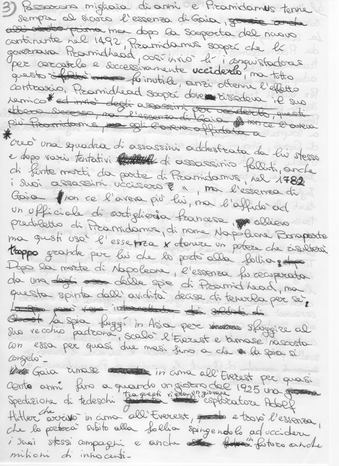 3) Passarono migliaia di anni e Piramidamus tenne
sempre al sicuro l'essenza di Gaia,
ma dopo la scoperta del nuovo
continente nel 1492, Piramidamus scoprì che lo
governava Piramidhead, così inviò i conquistadores
per cercarlo e successivamente ucciderlo, ma tutto
questo fu inutile, anzi ottenne l'effetto
contrario, Piramidhead scoprì dove risiedeva il suo
non ce l'aveva
più Piramidamus
* creò una squadra di assassini addestrata da lui stesso
e dopo vari tentativi di assassinio falliti, anche
di finte morti da parte di Piramidamus, nel 1782
i suoi assassini uccisero ", ma l'essenza di
Gaia non ce l'aveva più lui, ma l'affidò ad
un ufficiale di artiglieria francese allievo
prediletto di Piramidamus, di nome Napoleone Bonaparte
ma questi usò l'essenza x ottenere un potere che
troppo grande per lui che lo portò alla follia
Dopo la morte di Napoleone, l'essenza fu recuperata
da una delle spie di Piramidhead, ma
questa spinta dall'avidità decise di tenerla per sé
la spia fuggì in Asia per sfuggire al
suo vecchio padrone, scalò l'Everest e rimase nascosta
con essa per quasi due mesi fino a che la spia si
congelò.
Gaia rimase in cima all'Everest per quasi
cento anni fino a quando un giorno del 1925 una
spedizione di tedeschi tra questi esploratore Adolf
Hitler che arrivò in cima all'Everest, e trovò l'essenza,
che lo portò subito alla follia spingendolo ad uccidere
i suoi stessi compagni e anche in futuro anche
milioni di innocenti.